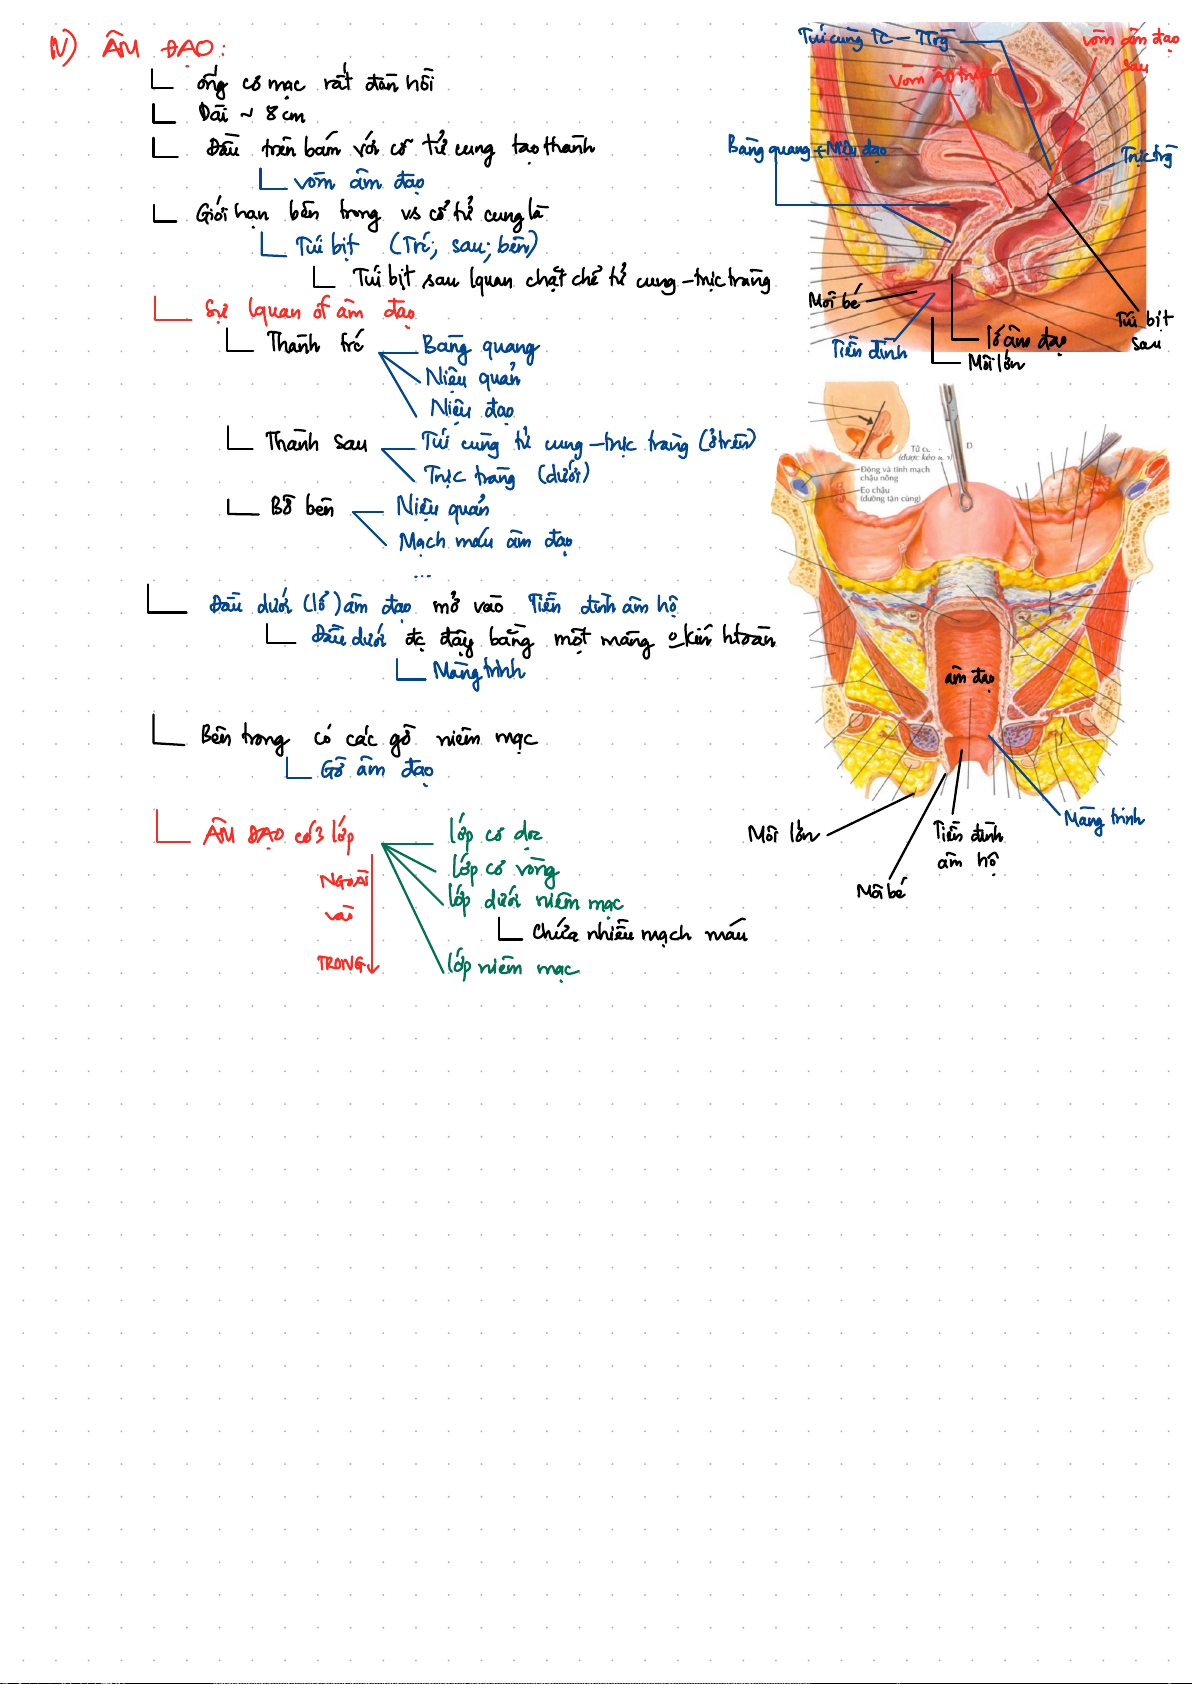 IV) ÂM ĐẠO:
ống cơ mạc rất đàn hồi
Dài ~ 8 cm
Đầu trên bám với cổ tử cung tạo thành
vòm âm đạo
Giới hạn bên trong vs cổ tử cung là
Túi bịt (Trc, sau, bên)
Túi bịt sau lquan chặt chẽ tử cung - trực tràng
Sự lquan of âm đạo
Thành trc
Bàng quang
Niệu quản
Niệu đạo
Thành sau
Túi cùng tử cung - trực tràng (ở trên)
Trực tràng (dưới)
Bờ bên
Niệu quản
Mạch máu âm đạo
...
Đầu dưới (lỗ) âm đạo mở vào Tiền đình âm hộ
Đầu dưới đc đậy bằng một màng o kín htoàn
Màng trinh
Bên trong có các gờ niêm mạc
Gờ âm đạo
ÂM ĐẠO có 3 lớp
NGOÀI
vào
TRONG
lớp cơ dọc
lớp cơ vòng
lớp dưới niêm mạc
Chứa nhiều mạch máu
lớp niêm mạc
Túi cùng TC - TTrg
vòm âm đạo
sau
Vòm ÂĐ trước
Bàng quang + Niệu đạo
Trực trg
Môi bé
Tiền đình
lỗ âm đạo
Môi lớn
Túi bịt
sau
Tử c
(được kéo
Động và tĩnh mạch
chậu nông
Eo chậu
(đường tận cùng)
âm đạo
Môi lớn
Môi bé
Tiền đình
âm hộ
Màng trinh